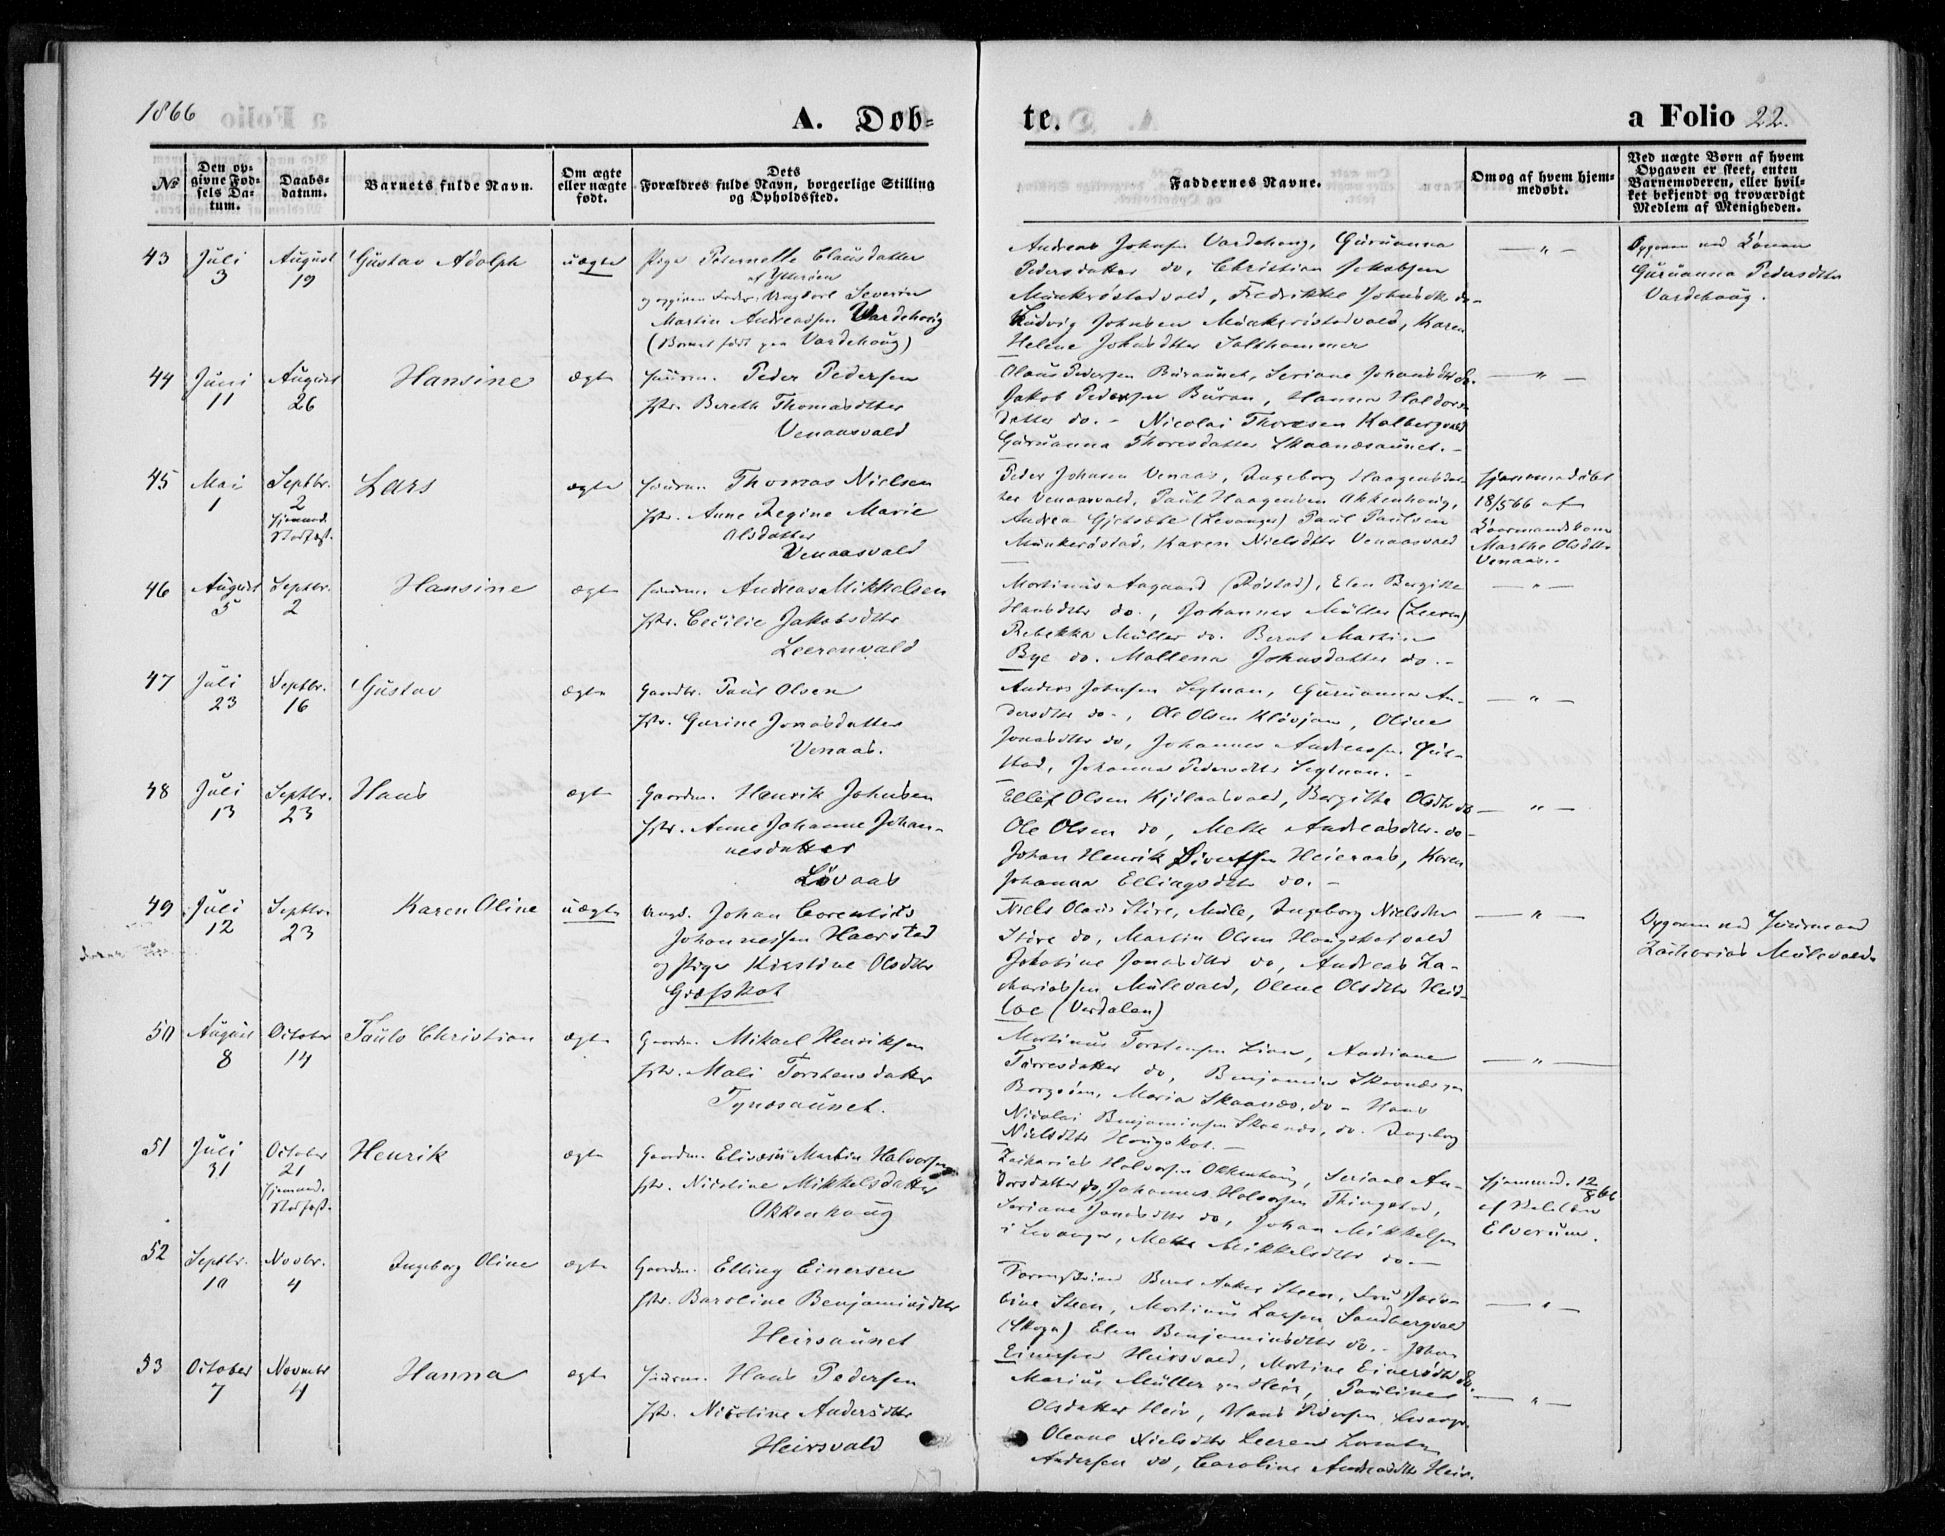 1866
A. Døb-
te.
a Folio 22.
No
Den op-
givne Fød-
sels Da-
tum.
Daabs-
datum.
Barnets fulde Navn.
Om ægte
eller uægte
født.
Dets
Forældres fulde Navn, borgerlige Stilling
og Opholdssted.
Faddernes Navne.
Om og af hvem hjem-
medøbt.
Ved uægte Børn af hvem
Opgaven er skeet, enten
Barnemoderen, eller hvil-
ket bekjendt og troværdigt
Medlem af Menigheden.
43 Juli 3 August 19 Gustav Adolph uægte
Pige Peternelle Clausdatter
af Ytterøen
og opgiven Fader: Ungkarl Severin
Martin Andreassen Vardehoug
(Barnet født paa Vardehoug)
Andreas Johnsen Vardehoug, Guruanna
Pedersdatter do, Christian Jakobsen
Munkerøstadvald, Fredrikke Johnsdtr do-
Ludvig Johnsen Munkerøstadvald, Karen
Helene Johnsdtter Salthammer
— " —
Opgaven ved Konen
Guruanna Pedersdtr
Vardehoug.
44 Juni 11 August 26 Hansine ægte
Huusm. Peder Pedersen
Hstr. Bereth Thomasdtter
Venaasvald
Olaus Pedersen Buraunet, Seriane Johansdtr do.
Jakob Pedersen Buran, Hanna Haldors-
datter do. - Nicolai Thoresen Kalbergvald
Guruanna Thoresdatter Skaanesaunet. -
— " —
45 Mai 1 Septbr. 2 Hjemmed. Stadfæst. Lars ægte
Huusm. Thomas Nielsen
Hstr. Anne Regine Marie
Olsdatter
Venaasvald
Peder Johnsen Venaas, Ingeborg Haagensdat-
ter Venaasvald, Paul Haagensen Okkenhoug,
Andrea Gjetsøbe (Levanger) Paul Paulsen
Munkerøstad, Karen Nielsdtr Venaasvald
Hjemmedøbt
18/5 66 af
Marthe Olsdtr
Venaas. -
46 August 5 Septbr. 2 Hansine ægte
Huusm. Andreas Mikkelsen
Hstr. Cecilie Jakobsdtr
Leerenvald
Mortinus Aagaard (Røstad), Elen Bergitte
Hansdtr do., Johannes Müller (Leeren)
Rebekka Müller do. Bernt Martin
Bye do. Mallena Johnsdatter do. -
— " —
47 Juli 23 Septbr. 16 Gustav ægte
Gaardbr. Paul Olsen
Hstr. Gurine Jonasdatter
Venaas.
Anders Johnsen Segtnan, Guruanna An-
dersdtr do., Ole Olsen Kløvjan, Oline
Jonasdtr do, Johannes Andreassen
stad, Johanna Pedersdtr Segtnan. -
— " —
48 Juli 13 Septbr. 23 Hans ægte
Gaardm. Henrik Johnsen
Hstr. Anne Johanne Johan-
nesdatter
Løvaas
Ellef Olsen Kjilaasvald, Bergitha Olsdtr do
Ole Olsen do, Mette Andreasdtr. do-
Johan Henrik Sivertsen Heieraas, Karen
Johanna Ellingsdtr do. -
— " —
49 Juli 12 Septbr. 23 Karen Oline uægte
Ungk. Johan Corentius
Johannessen Haerstad
og Pige Kirstine Olsdtr
Græfskot
Niels Olavs Støre, Mule, Ingeborg Nielsdtr
Støre do, Martin Olsen Hougskotvald
Jakobine Jonasdtr do, Andreas Za-
chariassen Mulevald, Olene Olsdtr Heid-
loe (Verdalen)
— " —
Opgaven ved Huusmand
Zacharias Mulevald.
50 August 8 October 14 Paulo Christian ægte
Gaardm. Mikael Henriksen
Hstr. Mali Torstensdatter
Tynesaunet.
Mortinus Torstensen Lian, Andriane
Tørresdatter do, Benjamin Skaanes paa
Borgsøen, Maria Skaanes, do - Hans
Nicolai Benjaminsen Skaanes, do. Ingeborg
Nielsdtr Hougskot. -
— " —
51 Juli 31 October 21 Hjemmed. Stadfæst. Henrik ægte
Gaardm. Elisæus Martin Halvorsen
Hstr. Nicoline Mikkelsdatter
Okkenhaug
Zakarias Halvorsen Okkenhaug, Seriane An-
dorsdatter do, Johannes Halvorsen Thingstad,
Seriane Jonasdtr do, Johan Mikkelsen
i Levanger, Mette Mikkelsdtr do —
Hjemmed. 12/8 66
Elverum.
52 Septbr. 10 Novbr. 4 Ingeborg Oline ægte
Gaardm. Elling Einersen
Hstr. Baroline Benjaminsdtr
Heirsaunet
Bernt Anker Steen, Fru Jaco-
bine Steen, Mortinus Larsen Sandbergvald
(Skogn) Elen Benjaminsdtr do. - Johan
Einersen Heirsvald, Mortine Einersdtr do.
— " —
53 October 7 Novembr 4 Hanna ægte
Huusm. Hans Pedersen
Hstr. Nicoline Andersdtr
Heirsvald
Marius Müller paa Heir, Pauline
Olsdatter Heir, Hans Pedersen Levanger
Oleane Nielsdtr Leeren
Andersen do, Caroline Andreasdtr Heir.
— " —